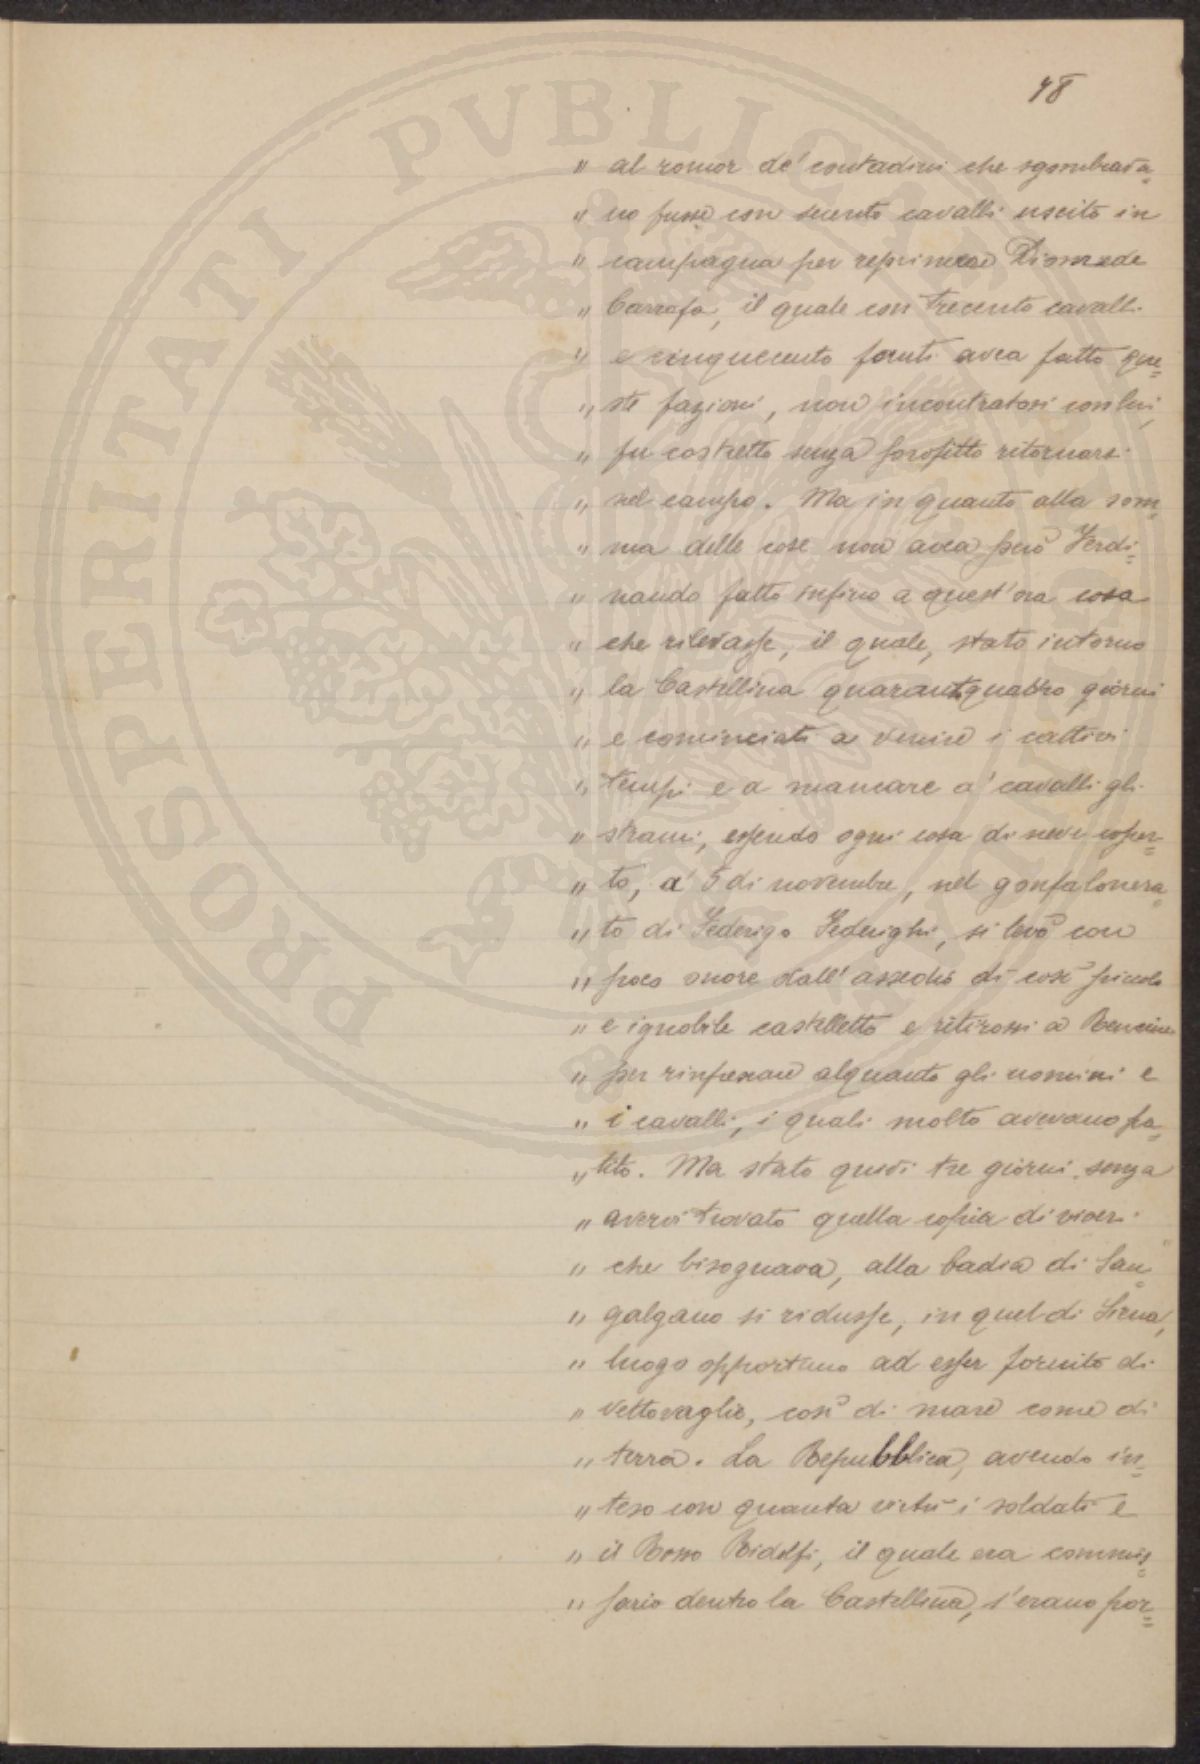 48
" al romor de' contadini che sgombrava=
" no fusse con secento cavalli uscito in
" campagna per reprimere Diomede
" Carrafa, il quale con trecento cavalli
" e cinquecento fanti avea fatto que=
" ste fazioni, non incontratosi con lui,
" fu costretto senza profitto ritornarsi
" nel campo. Ma in quanto alla som=
" ma delle cose non avea però Ferdi=
" nando fatto infino a quest'ora cosa
" che rilevasse, il quale, stato intorno
" la Castellina quarantquattro giorni
" e cominciati a venire i cattivi
" tempi e a mancare a' cavalli gli
" strami, essendo ogni cosa di neve coper=
" to, a' 5 di novembre, nel gonfalonera=
" to di Federigo Federighi, si levò con
" poco onore dall'assedio di così piccolo
" e ignobile castelletto e ritirossi a Rencine
" per rinfrescare alquanto gli uomini e
" i cavalli, i quali molto avevano pa=
" tito. Ma stato quivi tre giorni, senza
" avervi trovato quella copia di viveri
" che bisognava, alla badia di San=
" galgano si ridusse, in quel di Siena,
" luogo opportuno ad esser fornito di
" vettovaglie, così di mare come di
" terra. La Repubblica, avendo in=
" teso con quanta virtù i soldati e
" il Bosso Ridolfi, il quale era commis=
" sario dentro la Castellina, s'erano por=
PROSPERITATI PVBLICAE